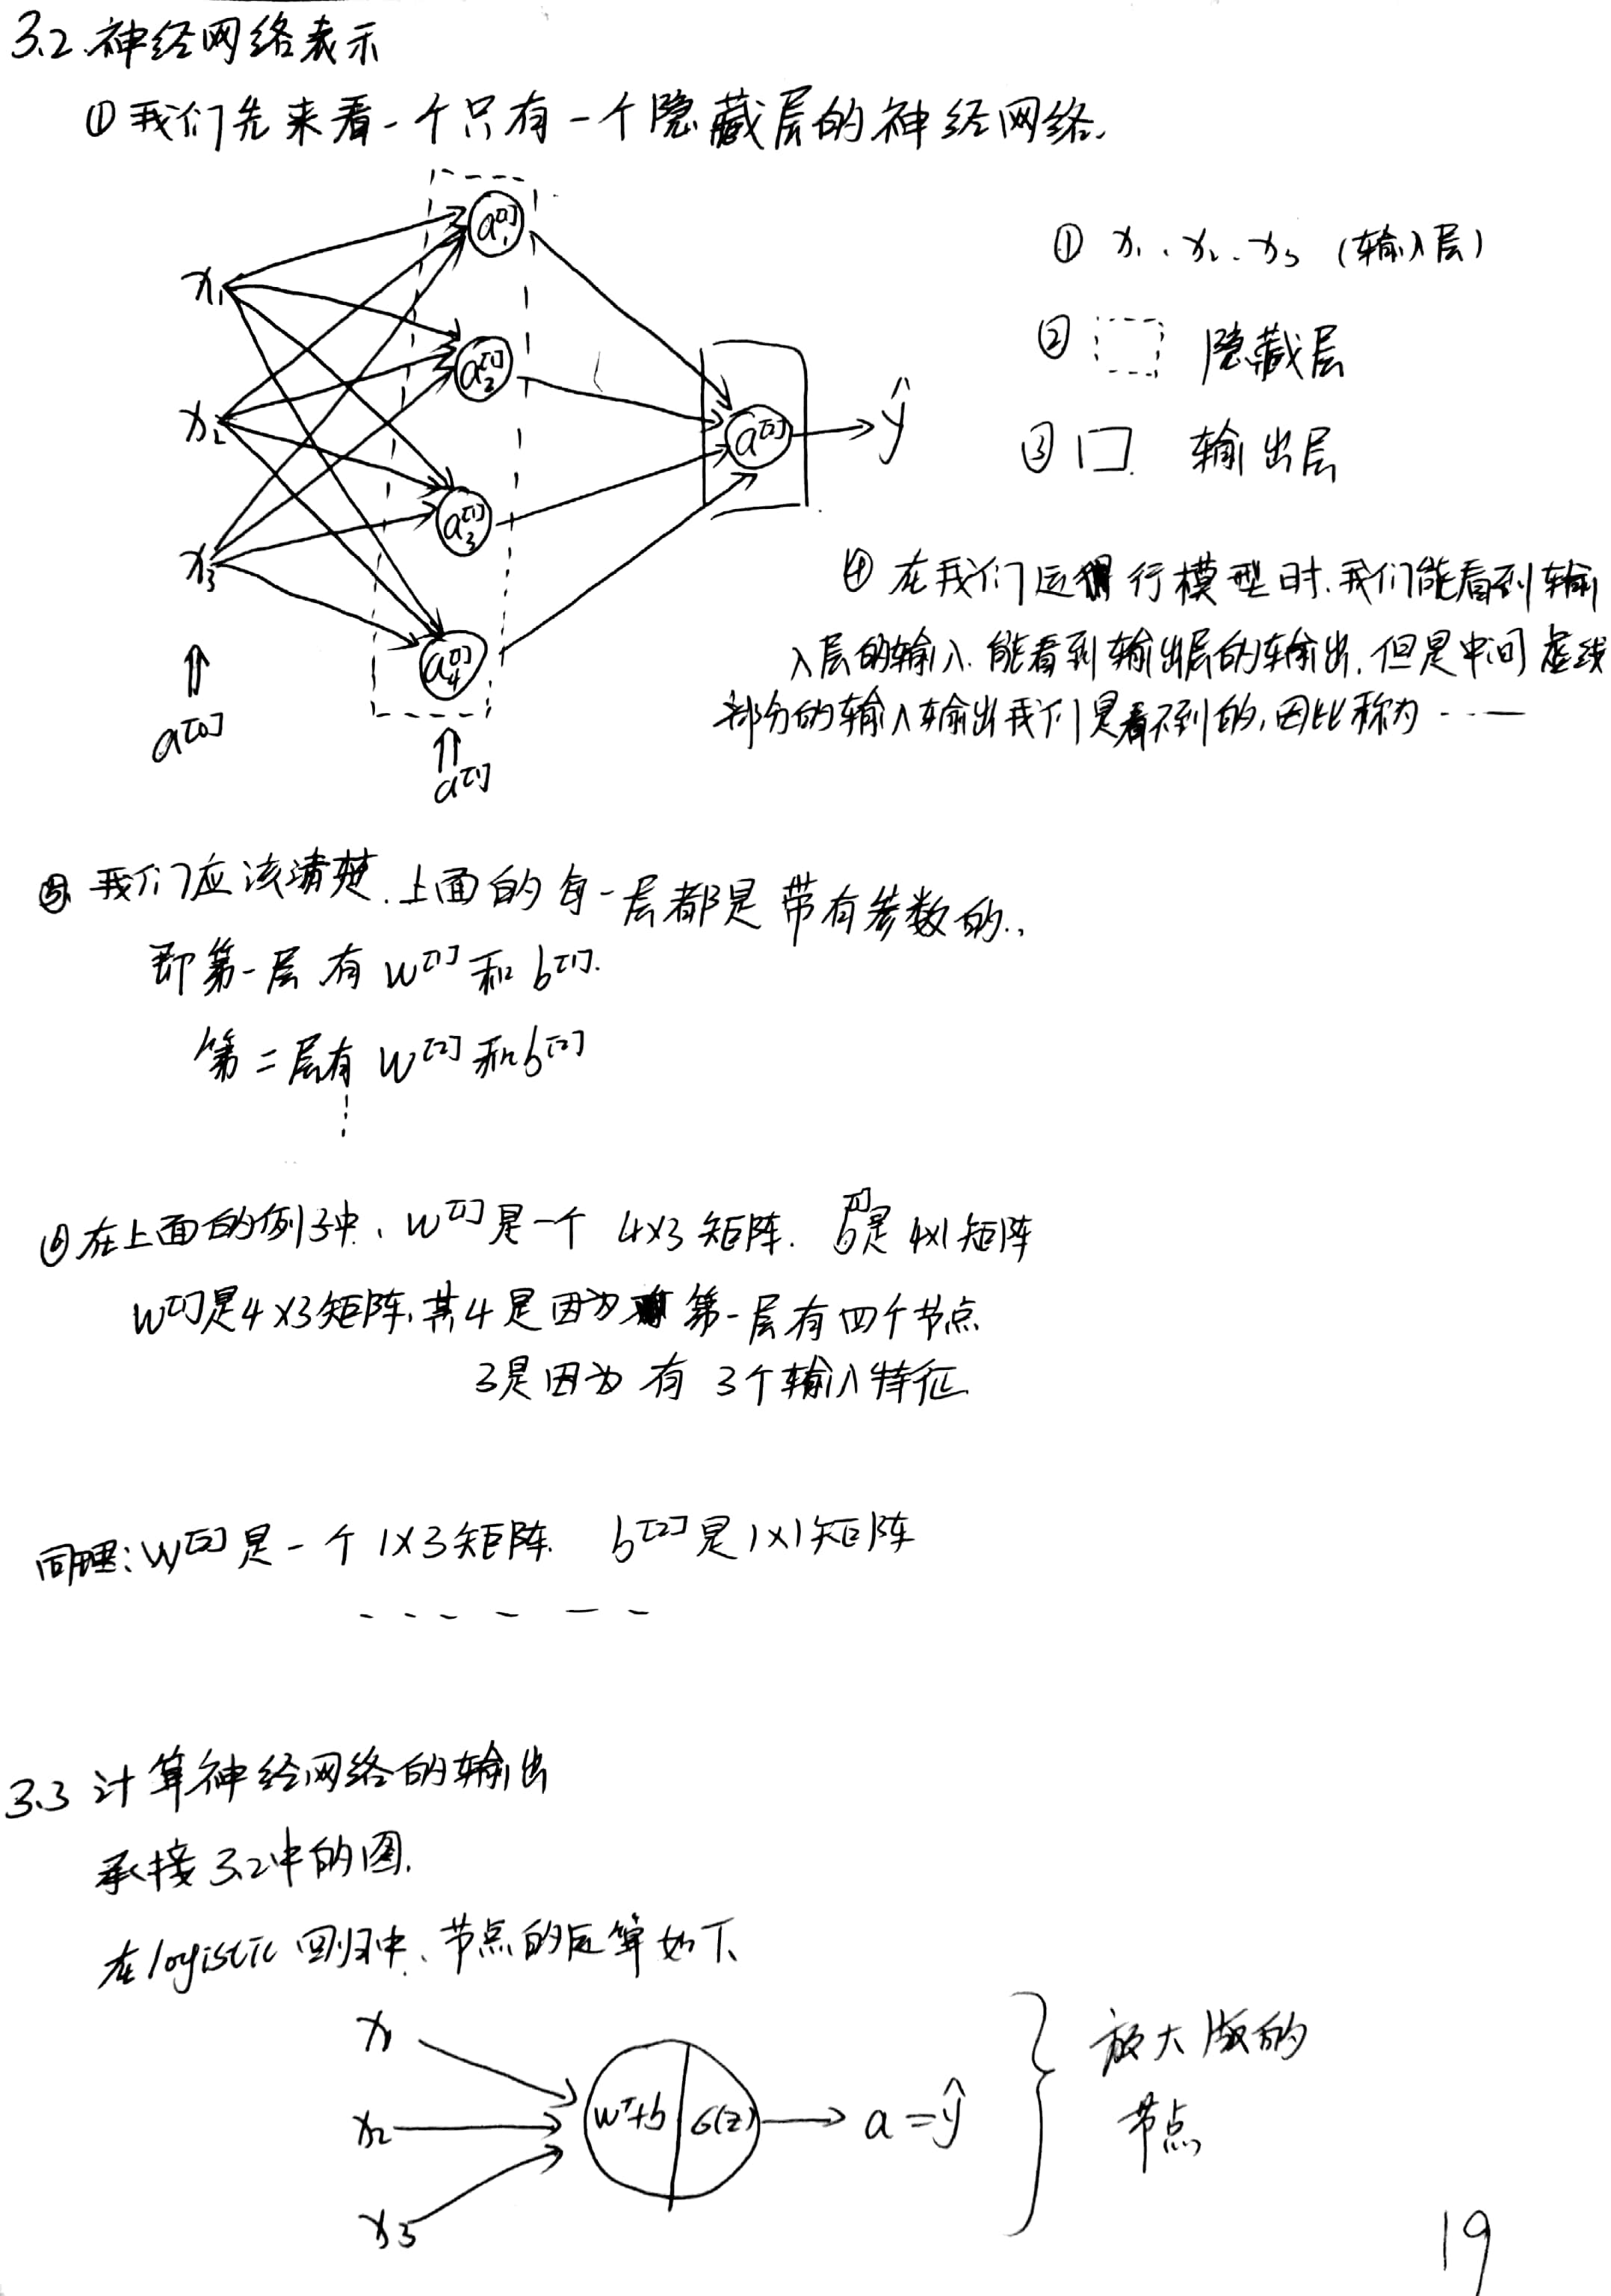 3.2.神经网络表示
①我们先来看一个只有一个隐藏层的神经网络.
a₁[1]
① x₁、x₂、x₃（输入层）
x₁
② 隐藏层
a₂[1]
x₂
a[2] → ŷ
③ 输出层
a₃[1]
x₃
④ 在我们运行模型时.我们能看到输
入层的输入.能看到输出层的输出.但是中间虚线
部分的输入输出我们是看不到的,因此称为 ·-—
a₄[1]
⇑
a[0]
⇑
a[1]
⑤ 我们应该清楚.上面的每一层都是带有参数的.,
即第一层有 w[1] 和 b[1].
第二层有 w[2] 和 b[2]
⋮
⑥在上面的例子中、w[1]是一个 4×3 矩阵. b[1]是 4×1 矩阵
w[1]是4×3矩阵,其4是因为第一层有四个节点
3是因为有 3个输入特征.
同理:w[2]是一个 1×3矩阵. b[2]是1×1矩阵
- - - - - -
3.3 计算神经网络的输出
承接3.2中的图.
在logistic 回归中、节点的运算如下、
x₁
放大版的
x₂ wᵀ+b σ(z) → a = ŷ
节点
x₃
19